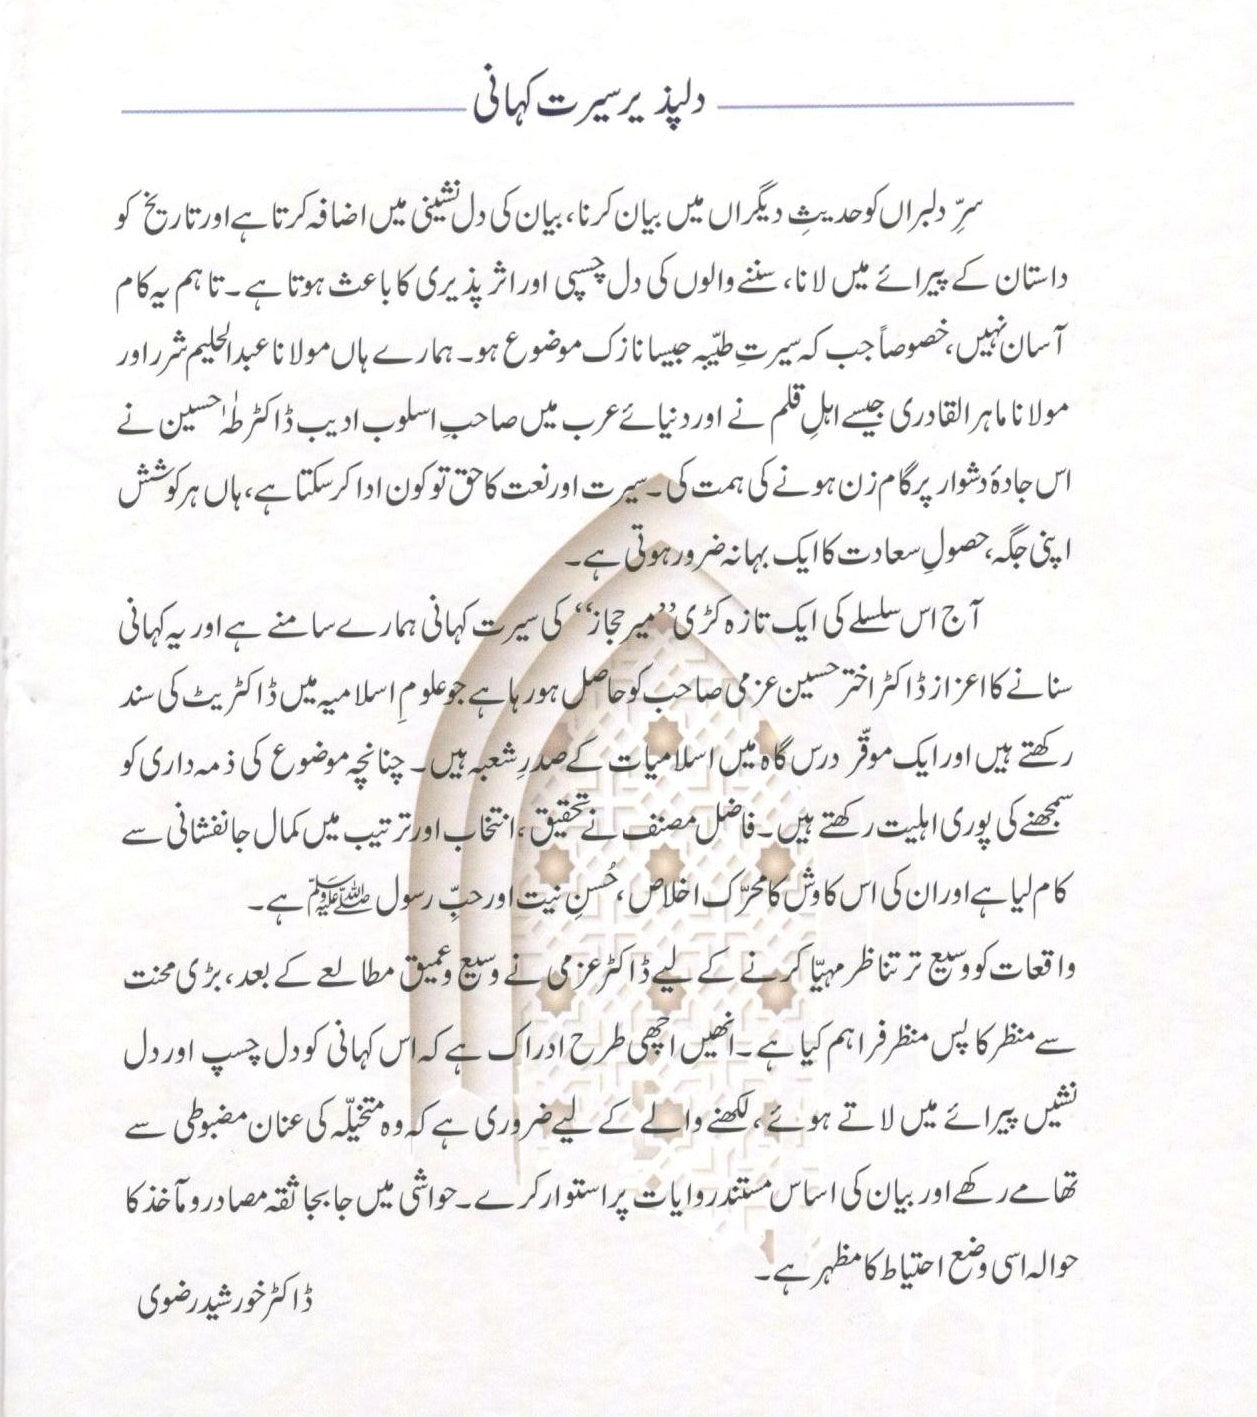 دلپذیر سیرت کہانی
سرِّ دلبراں کو حدیثِ دیگراں میں بیان کرنا، بیان کی دل نشینی میں اضافہ کرتا ہے اور تاریخ کو
داستان کے پیرائے میں لانا، سننے والوں کی دل چسپی اور اثر پذیری کا باعث ہوتا ہے۔ تاہم یہ کام
آسان نہیں، خصوصاً جب کہ سیرتِ طیّبہ جیسا نازک موضوع ہو۔ ہمارے ہاں مولانا عبدالحلیم شرر اور
مولانا ماہر القادری جیسے اہلِ قلم نے اور دنیائے عرب میں صاحبِ اسلوب ادیب ڈاکٹر طٰہٰ حسین نے
اس جادۂ دشوار پر گام زن ہونے کی ہمت کی۔ سیرت اور نعت کا حق تو کون ادا کر سکتا ہے، ہاں ہر کوشش
اپنی جگہ، حصولِ سعادت کا ایک بہانہ ضرور ہوتی ہے۔
آج اس سلسلے کی ایک تازہ کڑی ”میر حجاز“ کی سیرت کہانی ہمارے سامنے ہے اور یہ کہانی
سنانے کا اعزاز ڈاکٹر اختر حسین عزمی صاحب کو حاصل ہو رہا ہے جو علومِ اسلامیہ میں ڈاکٹریٹ کی سند
رکھتے ہیں اور ایک موقّر درس گاہ میں اسلامیات کے صدرِ شعبہ ہیں۔ چنانچہ موضوع کی ذمہ داری کو
سمجھنے کی پوری اہلیت رکھتے ہیں۔ فاضل مصنف نے تحقیق، انتخاب اور ترتیب میں کمال جانفشانی سے
کام لیا ہے اور ان کی اس کاوش کا محرّک اخلاص، حُسنِ نیت اور حبِّ رسول ﷺ ہے۔
واقعات کو وسیع تر تناظر مہیّا کرنے کے لیے ڈاکٹر عزمی نے وسیع و عمیق مطالعے کے بعد، بڑی محنت
سے منظر کا پس منظر فراہم کیا ہے۔ انھیں اچھی طرح ادراک ہے کہ اس کہانی کو دل چسپ اور دل
نشیں پیرائے میں لاتے ہوئے، لکھنے والے کے لیے ضروری ہے کہ وہ متخیّلہ کی عنان مضبوطی سے
تھامے رکھے اور بیان کی اساس مستند روایات پر استوار کرے۔ حواشی میں جا بجا ثقہ مصادر و مآخذ کا
حوالہ اسی وضع احتیاط کا مظہر ہے۔
ڈاکٹر خورشید رضوی